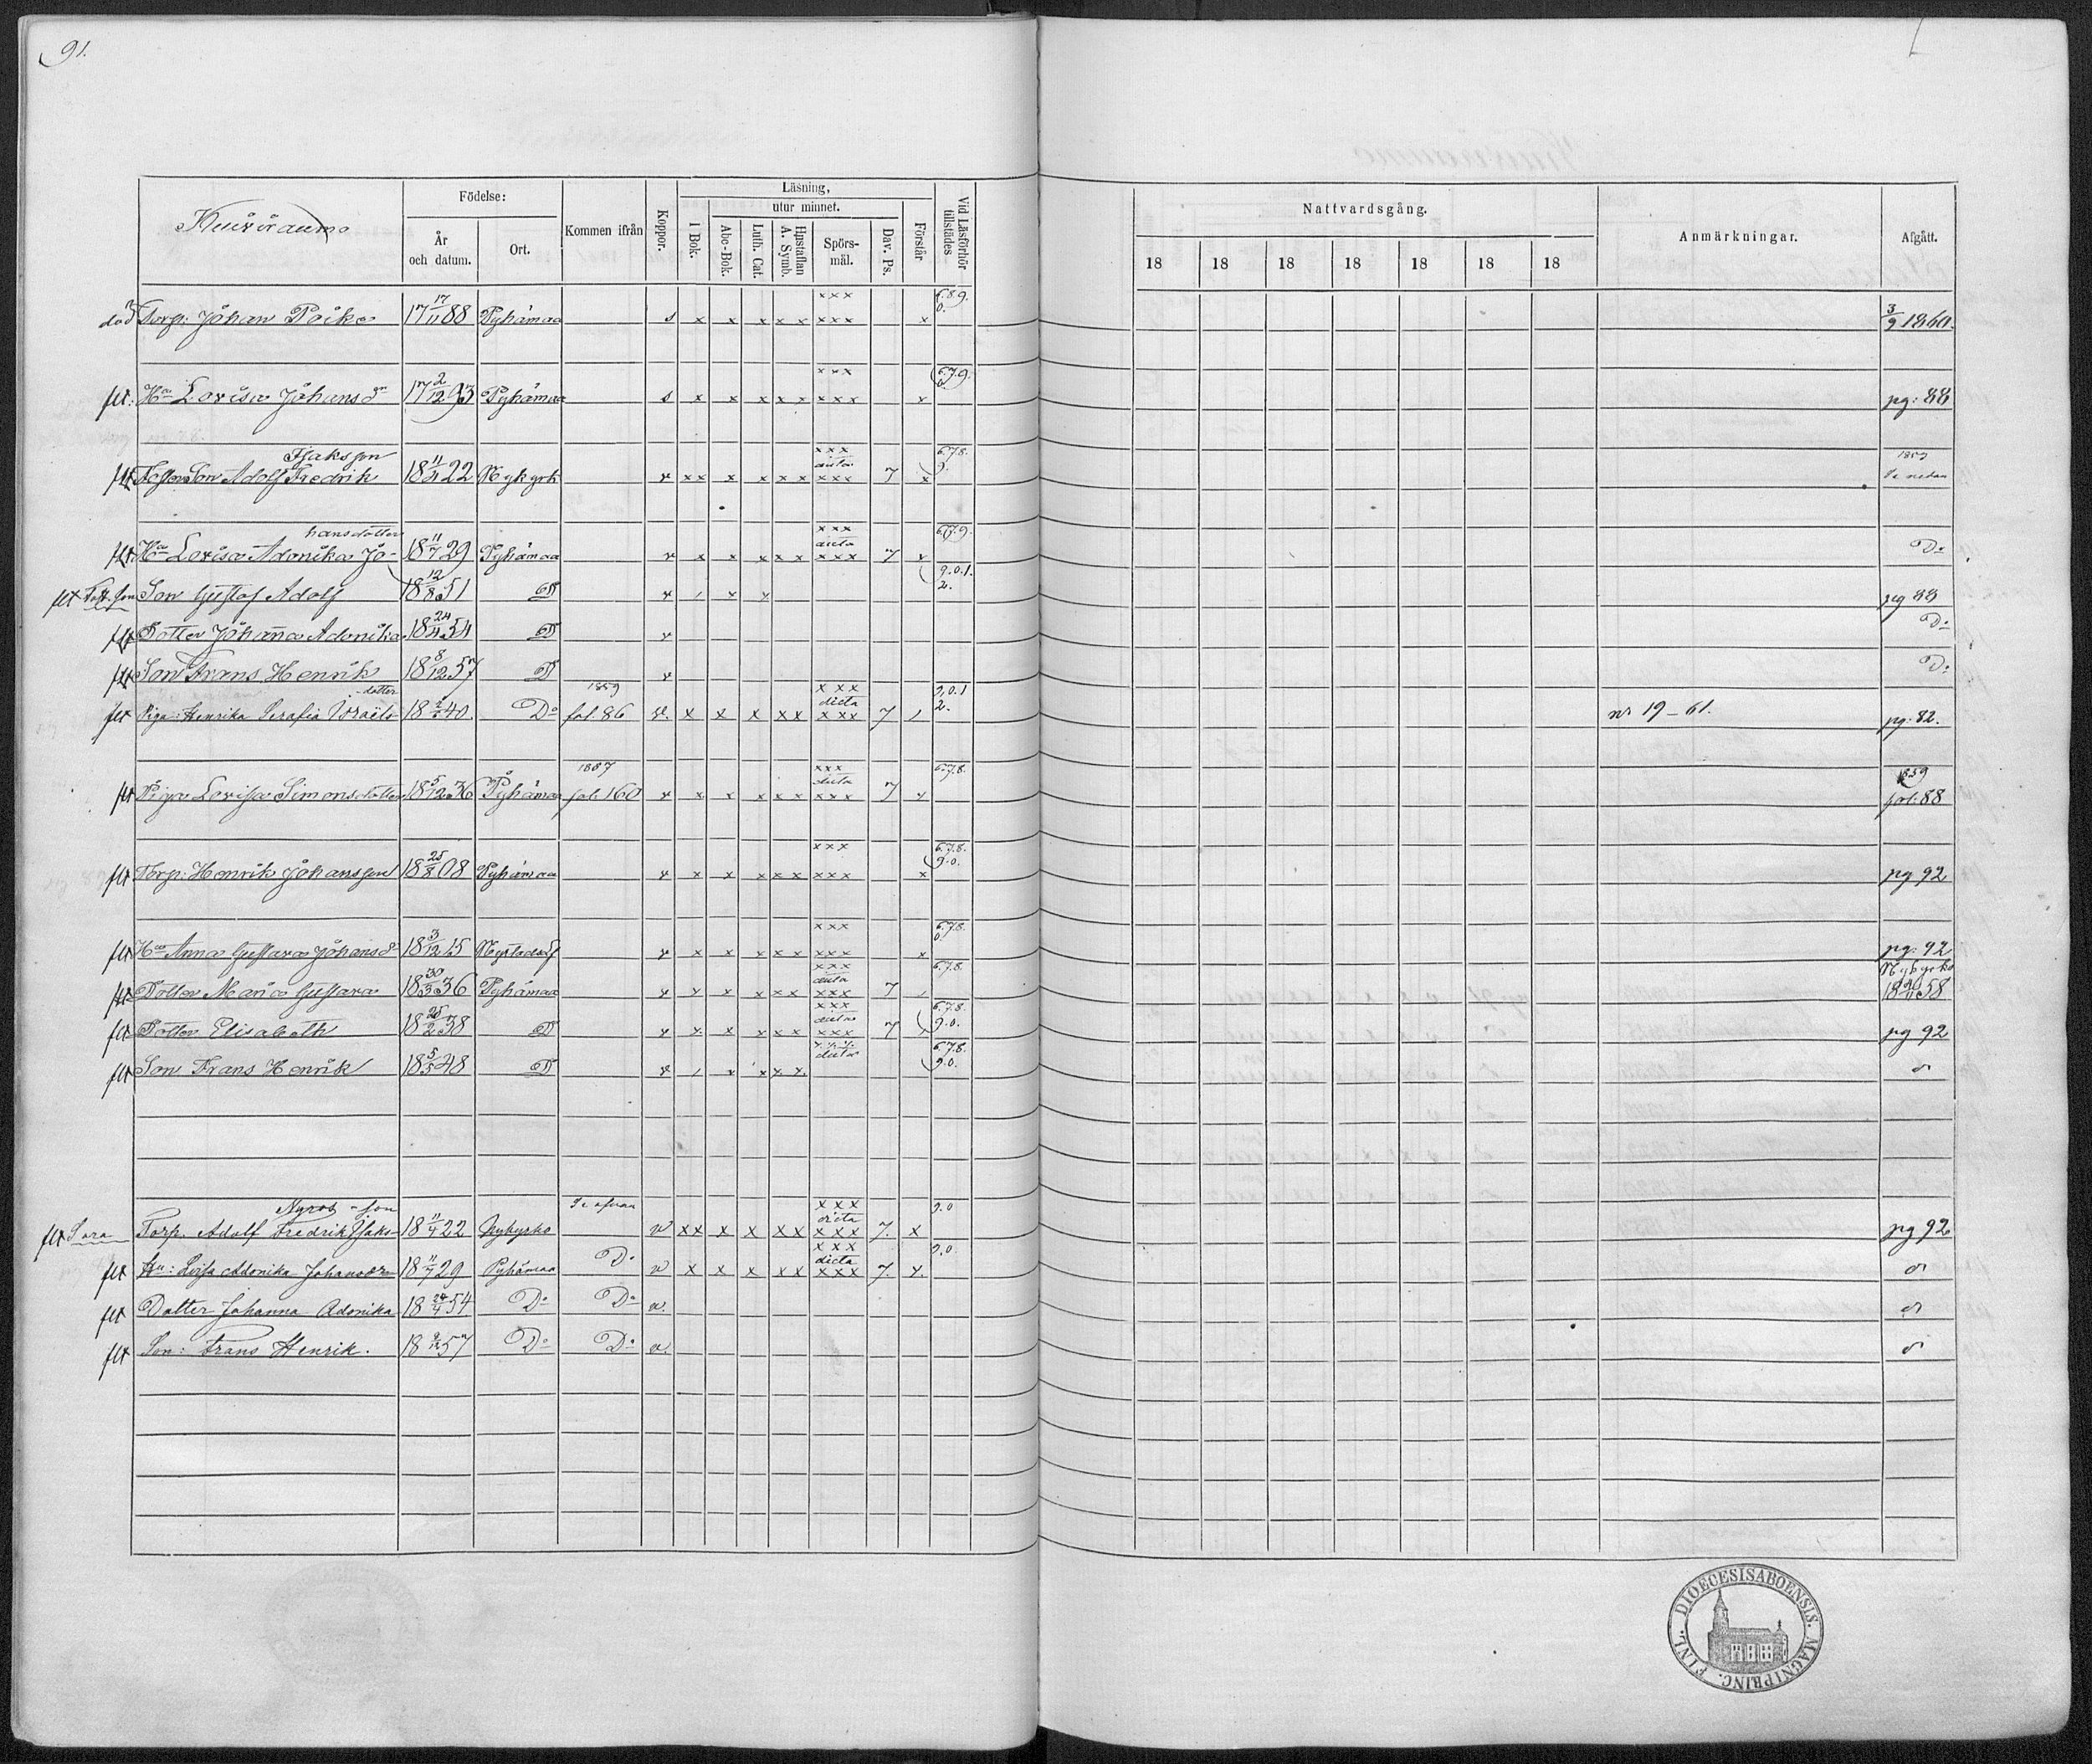 91.
Födelse:
Läsning,
utur minnet.
Kommen ifrån
Koppor.
I Bok.
Abc-Bok.
Luth. Cat.
Hustaflan A. Symb.
Spörs-mål.
Dav. Ps.
Förstår
Vid Läsförhör tillstädes
År och datum.
Ort.
Nattvardsgång.
Anmärkningar.
Afgått.
18 18 18 18 18 18 18
död Torp: Johan Poike 17 17/11 88 Pyhämaa s x x x x x x x x x x x x 6.8.9. 0. 3/9 1860.
flt. Ha Lovisa Johansdr 17 2/12 93 Pyhämaa s x x x x x x x x x x x x 6.7.9. pg: 88
Isaksson
flt Foster Son Adolf Fredrik 18 11/4 22 Nykyrk v x x x x x x x x x dicta x x x 7 x 6.7.8. 9. 1859 Se nedan
hansdotter
flt. Ha Lovisa Adonika Jo- 18 11/7 29 Pyhämaa v x x x x x x x x dicta x x x 7 x 6.7.9. Do
flt Fost. son Son Gustaf Adolf 18 12/8 51 D v x x 9.0.1. 2. pg 88
flt Dotter Johanna Adonika 18 24/4 54 D v Do
flt Son Frans Henrik 18 8/12 57 D v Do
-dotter
flt Piga: Henrika Serafia Israels 18 40. Do 1859 fol. 86 v. x x x x x x x x dicta x x x 7 9.0.1 2. nr 19-61. pg. 82.
flt Piga Lovisa Simonsdotter 18 5/12 36 Pyhämaa 1857 fol. 160 v x x x x x x x x dicta x x x 7 x 6.7.8. 1859 fol: 88
flt Torp: Henrik Johansson 18 25/8 08 Pyhämaa v x x x x x x x x x x x x 6.7.8. 9.0. pg 92
flt Ha Anna Gustava Johansd 18 3/12 15 v x x x x x x x x x x x x 6.7.8. 0 pg. 92
flt Dotter Maria Gustava 18 30/3 36 Pyhämaa v x x x x x x x x dicta x x x 7 6.7.8. Nykyrko 18 58
flt Dotter Elisabeth 18 25/2 38 D v x x x x x x x x dicta x x x 7 6.7.8. 9.0. pg 92
flt Son Frans Henrik 18 5/5 48 D v x x x x dicta 6.7.8. 9.0.
-son
flt Torp. Adolf Fredrik Isaks- 18 11/4 22 Nykyrko Se ofvan v x x x x x x x x x dicta x x x 7. x 9.0 pg 92
flt Hu: Lovisa Adonika Johansdr 18 11/7 29 Pyhämaa Do v x x x x x x x x dicta x x x 7. x. 9.0.
flt Dotter Johanna Adonika 18 24/4 54 Do Do v.
flt Son: Frans Henrik. 18 8/12 57 Do Do v.
DIOECESIS ABOENSIS. MAGNI PRINC. FINL.